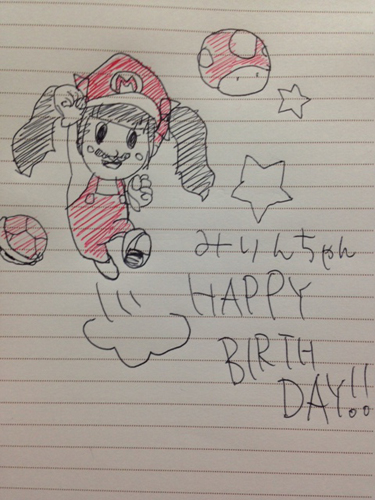 M
みりんちゃん
HAPPY
BIRTH
DAY!!